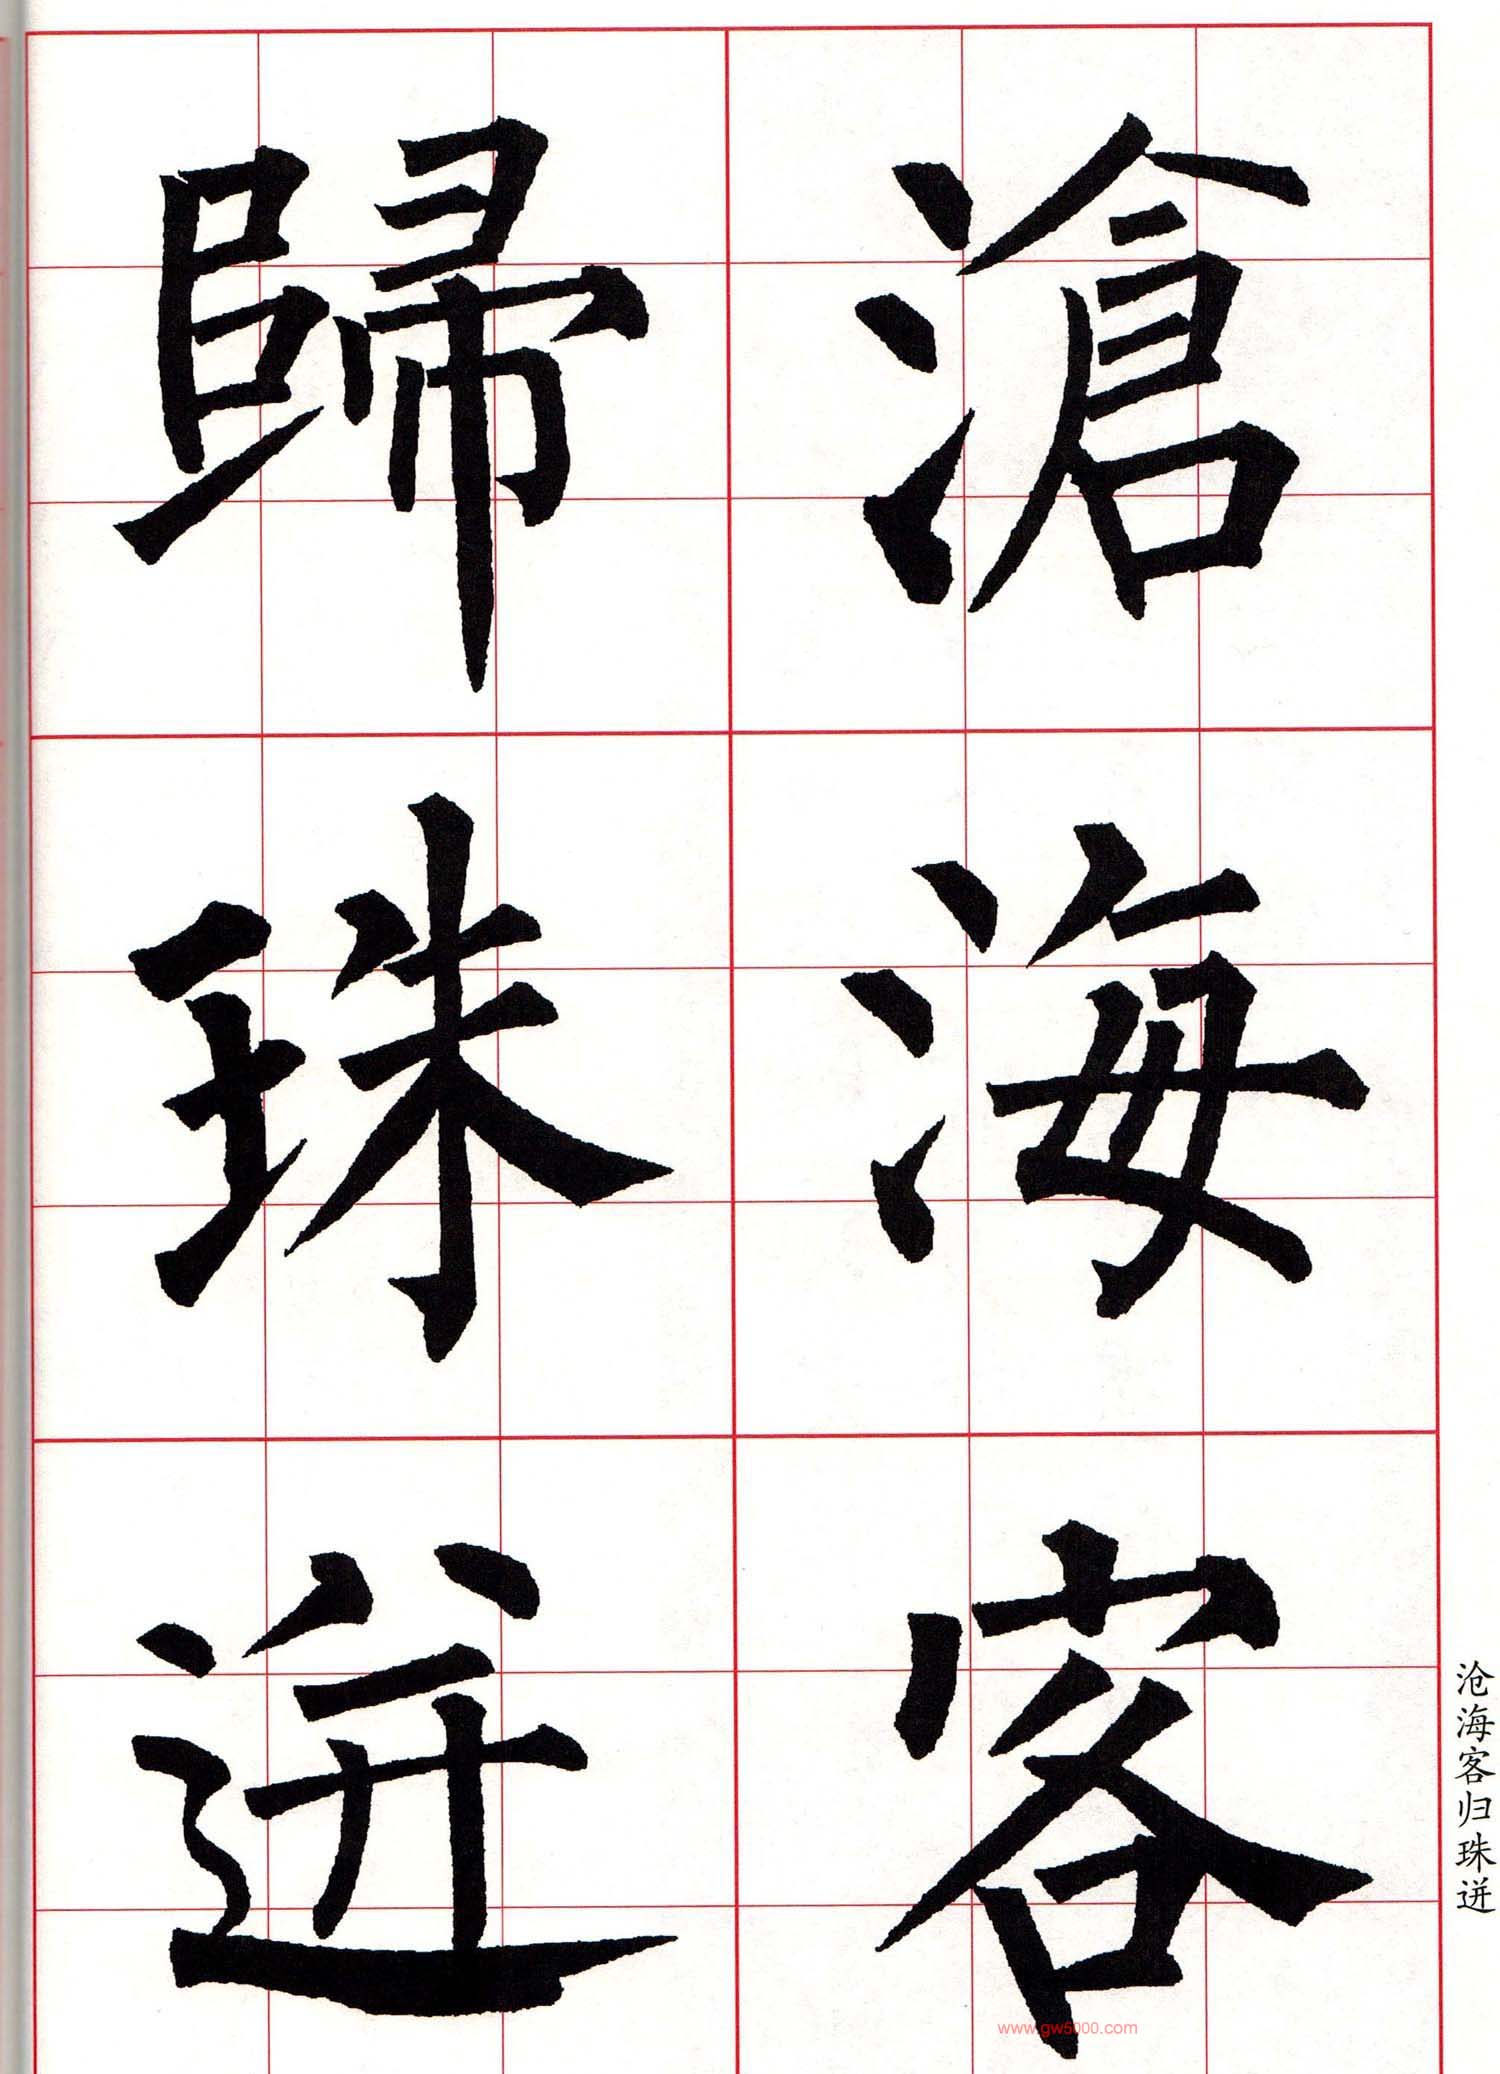 滄海客
歸珠迸
沧海客归珠迸
www.gw5000.com